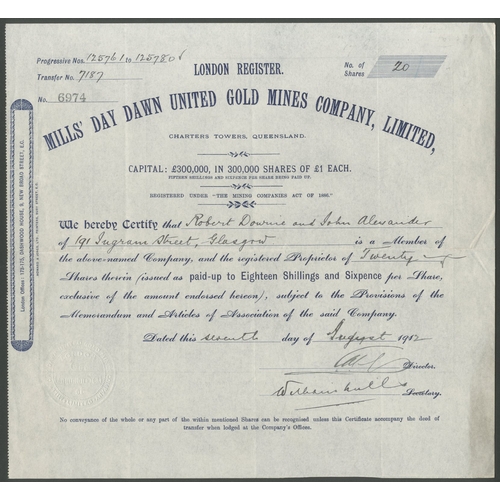 Progressive Nos. 125761 to 125780
Transfer No. 7187
No. 6974
LONDON REGISTER.
No. of Shares 20
MILLS' DAY DAWN UNITED GOLD MINES COMPANY, LIMITED,
CHARTERS TOWERS, QUEENSLAND.
CAPITAL: £300,000, IN 300,000 SHARES OF £1 EACH.
FIFTEEN SHILLINGS AND SIXPENCE PER SHARE BEING PAID UP.
REGISTERED UNDER "THE MINING COMPANIES ACT OF 1886."
We hereby Certify that Robert Downie and John Alexander
of 191 Ingram Street, Glasgow is a Member of
the above-named Company, and the registered Proprietor of Twenty
Shares therein (issued as paid-up to Eighteen Shillings and Sixpence per Share,
exclusive of the amount endorsed hereon), subject to the Provisions of the
Memorandum and Articles of Association of the said Company.
Dated this seventh day of August 1912
Director.
Secretary.
No conveyance of the whole or any part of the within mentioned Shares can be recognised unless this Certificate accompany the deed of
transfer when lodged at the Company's Offices.
London Offices: 175-176, DASHWOOD HOUSE, 9, NEW BROAD STREET, E.C.